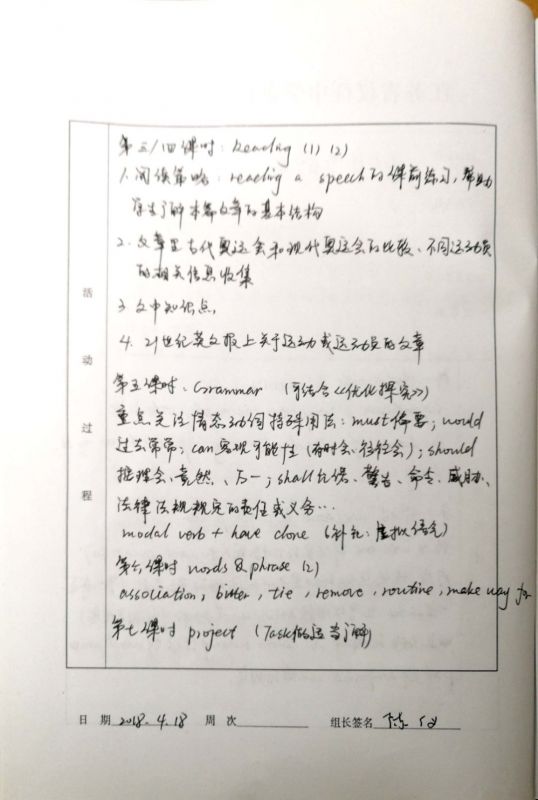 第三/四课时: Reading (1) (2)
1. 阅读策略: reading a speech的课前练习, 帮助
学生了解本篇文章的基本结构
2. 文章里古代奥运会和现代奥运会的比较、不同运动员
的相关信息收集
3. 文中知识点,
4. 21世纪英文报上关于运动或运动员的文章
第五课时: Grammar (可结合《优化探究》)
重点关注情态动词特殊用法: must偏要; would
过去常常; can客观可能性 (有时会、往往会); should
推理会、竟然、万一; shall允诺、警告、命令、威胁、
法律法规规定的责任或义务…
modal verb + have done (补充: 虚拟语气)
第六课时 words & phrase (2)
association, bitter, tie, remove, routine, make way for
第七课时 project (Task做适当讲解)
活动过程
日 期 2018.4.18 周 次 组长签名 陈